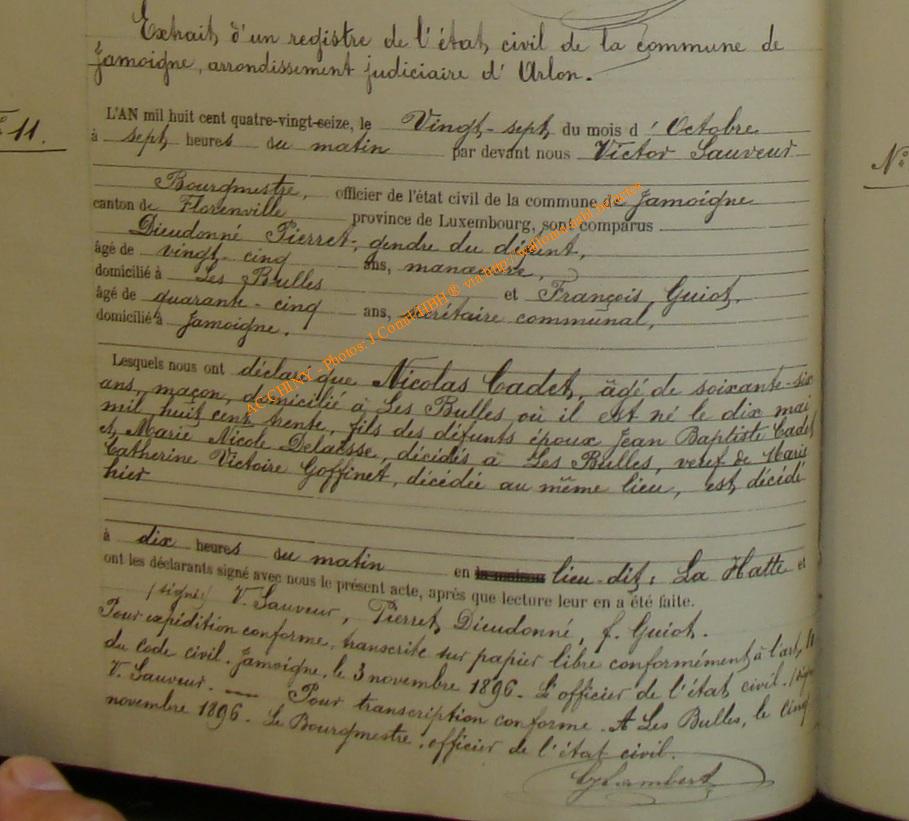 Extrait d'un registre de l'état civil de la commune de
Jamoigne, arrondissement judiciaire d'Arlon.
11.
L'AN mil huit cent quatre-vingt-seize, le Vingt-sept du mois d'Octobre
à sept heures du matin par devant nous Victor Sauveur
N°
Bourgmestre, officier de l'état civil de la commune de Jamoigne
canton de Florenville province de Luxembourg, sont comparus
Dieudonné Pierret, gendre du défunt,
âgé de vingt-cinq ans, manœuvre,
domicilié à Les Bulles et François Guiot,
âgé de quarante-cinq ans, secrétaire communal,
domicilié à Jamoigne.
Lesquels nous ont déclaré que Nicolas Cadet, âgé de soixante-six
ans, maçon, domicilié à Les Bulles où il est né le dix mai
mil huit cent trente, fils des défunts époux Jean Baptiste Cadet
et Marie Nicole Delaisse, décédés à Les Bulles, veuf de Marie
Catherine Victoire Goffinet, décédée au même lieu, est décédé
hier
à dix heures du matin en la maison lieu-dit: La Hatte et
ont les déclarants signé avec nous le présent acte, après que lecture leur en a été faite.
(signé) V. Sauveur, Pierret Dieudonné, f. Guiot.
Pour expédition conforme, transcrite sur papier libre conformément à l'art.
du Code civil. Jamoigne, le 3 novembre 1896. L'officier de l'état civil. (signé
V. Sauveur. — Pour transcription conforme. A Les Bulles, le cinq
novembre 1896. Le Bourgmestre, officier de l'état civil.
Lambert
AC CHINY - Photos: J Cornet HBH® via http://